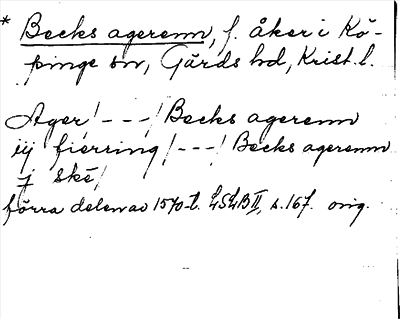 * Becks agerenn, f. åker i Kö-
pinge sn, Gärds hd, Krist. l.
Ager / - - - / Becks agerenn
iij fierring / - - - / Becks agerenn
j skē /
förra delen av 1570-t. LSLB II, s. 167. orig.